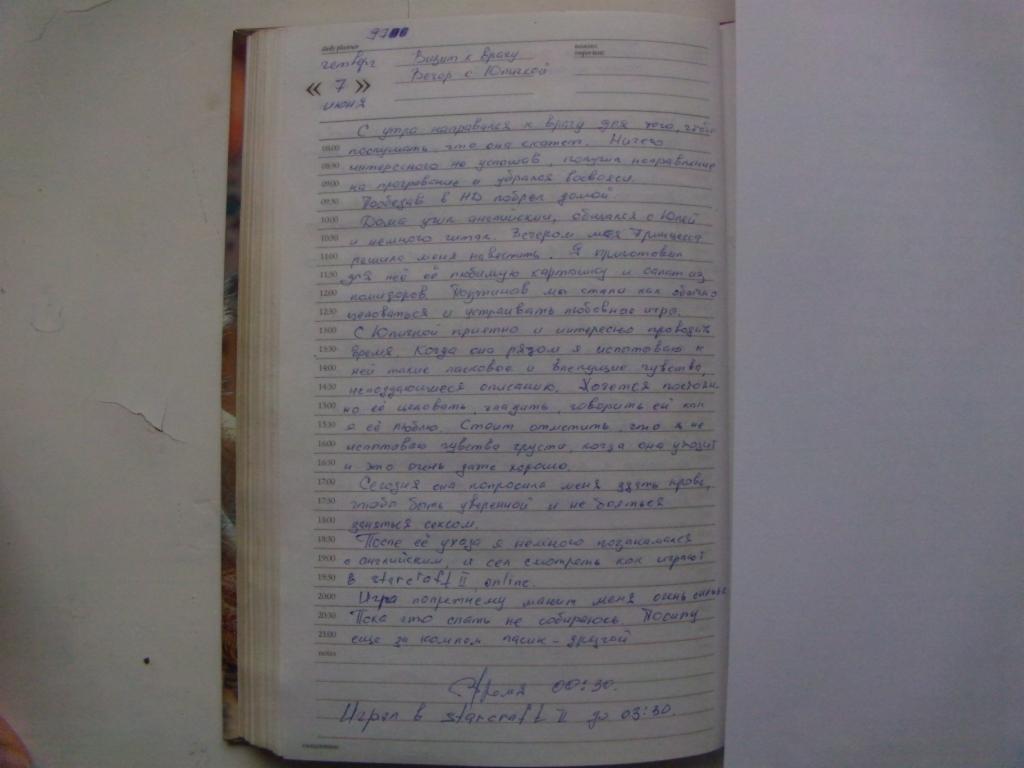 четверг
« 7 »
июня
Визит к врачу
Вечер с Юличкой
С утра направился к врачу для того, чтобы
08:00 послушать, что она скажет. Ничего
08:30 интересного не услышав, получил направление
09:00 на прогревание и убрался восвояси.
09:30 Пообедав в HD побрёл домой.
10:00 Дома учил английский, общался с Юлей
10:30 и немного читал. Вечером моя Принцесса
11:00 решила меня навестить. Я приготовил
11:30 для неё её любимую картошку и салат из
12:00 помидоров. Поужинав мы стали как обычно
12:30 целоваться и устраивать любовные игры.
13:00 С Юличкой приятно и интересно проводить
13:30 время. Когда она рядом я испытываю к
14:00 ней такие ласковые и влекущие чувства,
14:30 неподдающиеся описанию. Хочется постоян-
15:00 но её целовать, гладить, говорить ей как
15:30 я её люблю. Стоит отметить, что я не
16:00 испытываю чувства грусти, когда она уходит
16:30 и это очень даже хорошо.
17:00 Сегодня она попросила меня здать кровь,
17:30 чтобы быть уверенной и не бояться
18:00 заняться сексом.
18:30 После её ухода я немного позанимался
19:00 английским, и сел смотреть как играют
19:30 в starcraft II online.
20:00 Игра попрежнему манит меня очень сильно
20:30 Пока что спать не собираюсь. Посижу
21:00 еще за компом часик-другой
notes
Время 00:30.
Играл в starcraft II до 03:30.